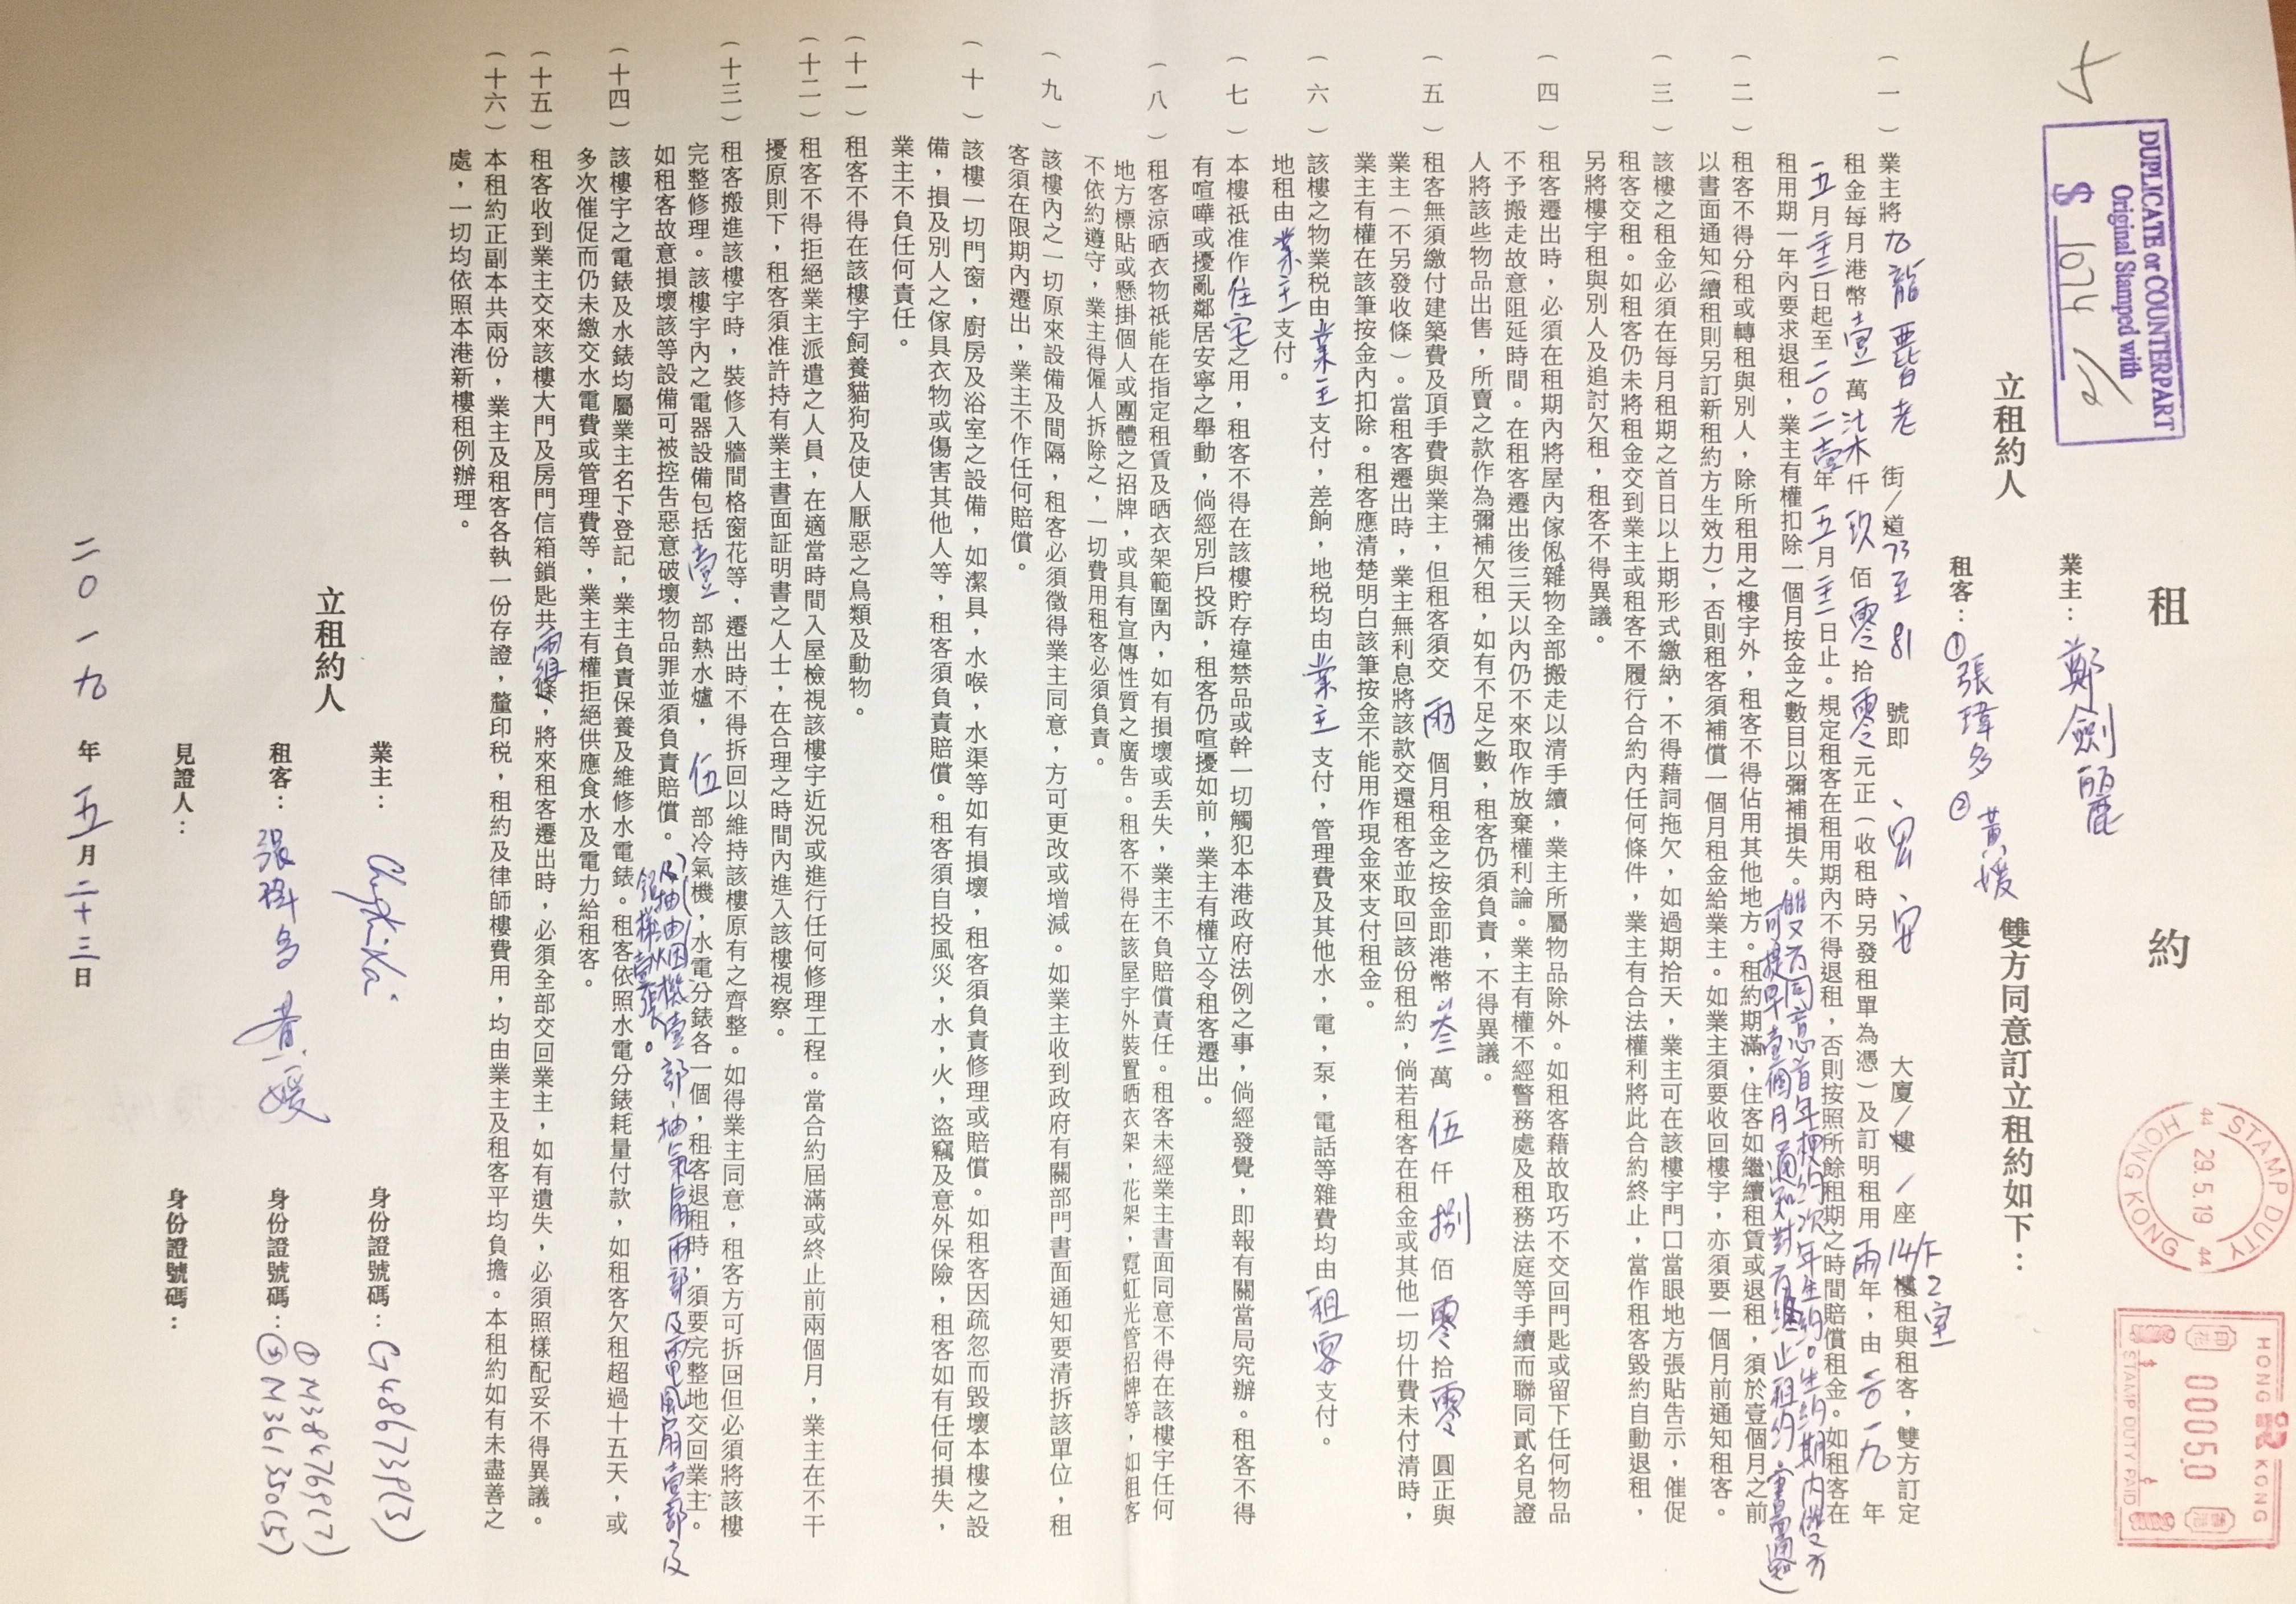 租約
業主：鄭劍麗
立租約人
租客：①張瑋多 ②黃媛
雙方同意訂立租約如下：
DUPLICATE or COUNTERPART
Original Stamped with
$ 1674
STAMP DUTY
HONG KONG
44 29.5.19 44
HONG KONG
00050
STAMP DUTY PAID
（一）業主將九龍 老 街/道73至81 號即 、 安 大廈/樓 /座14/F樓2室租與租客，雙方訂定
租金每月港幣壹萬柒仟玖佰零拾零元正（收租時另發租單為憑）及訂明租用兩年，由二〇一九年
五月廿三日起至二〇二壹年五月廿二日止。規定租客在租用期內不得退租，否則按照所餘租期之時間賠償租金。如租客在
租用期一年內要求退租，業主有權扣除一個月按金之數目以彌補損失。雙方同意首年梗約次年生約。生約期內雙方
可提早壹個月通知對方終止租約（書面通知）
（二）租客不得分租或轉租與別人，除所租用之樓宇外，租客不得佔用其他地方。租約期滿，住客如繼續租賃或退租，須於壹個月之前
以書面通知（續租則另訂新租約方生效力），否則租客須補償一個月租金給業主。如業主須要收回樓宇，亦須要一個月前通知租客。
（三）該樓之租金必須在每月租期之首日以上期形式繳納，不得藉詞拖欠，如過期拾天，業主可在該樓宇門口當眼地方張貼告示，催促
租客交租。如租客仍未將租金交到業主或租客不履行合約內任何條件，業主有合法權利將此合約終止，當作租客毀約自動退租，
另將樓宇租與別人及追討欠租，租客不得異議。
（四）租客遷出時，必須在租期內將屋內傢俬雜物全部搬走以清手續，業主所屬物品除外。如租客藉故取巧不交回門匙或留下任何物品
不予搬走故意阻延時間。在租客遷出後三天以內仍不來取作放棄權利論。業主有權不經警務處及租務法庭等手續而聯同貳名見證
人將該些物品出售，所賣之款作為彌補欠租，如有不足之數，租客仍須負責，不得異議。
（五）租客無須繳付建築費及頂手費與業主，但租客須交 兩 個月租金之按金即港幣叁萬伍仟捌佰零拾零圓正與
業主（不另發收條）。當租客遷出時，業主無利息將該款交還租客並取回該份租約，倘若租客在租金或其他一切什費未付清時，
業主有權在該筆按金內扣除。租客應清楚明白該筆按金不能用作現金來支付租金。
（六）該樓之物業税由業主支付，差餉，地税均由業主支付，管理費及其他水，電，泵，電話等雜費均由租客支付。
地租由業主支付。
（七）本樓祇准作住宅之用，租客不得在該樓貯存違禁品或幹一切觸犯本港政府法例之事，倘經發覺，即報有關當局究辦。租客不得
有喧嘩或擾亂鄰居安寧之舉動，倘經別戶投訴，租客仍喧擾如前，業主有權立令租客遷出。
（八）租客涼晒衣物祇能在指定租賃及晒衣架範圍內，如有損壞或丟失，業主不負賠償責任。租客未經業主書面同意不得在該樓宇任何
地方標貼或懸掛個人或團體之招牌，或具有宣傳性質之廣告。租客不得在該屋宇外裝置晒衣架，花架，霓虹光管招牌等，如租客
不依約遵守，業主得僱人拆除之，一切費用租客必須負責。
（九）該樓內之一切原來設備及間隔，租客必須徵得業主同意，方可更改或增減。如業主收到政府有關部門書面通知要清拆該單位，租
客須在限期內遷出，業主不作任何賠償。
（十）該樓一切門窗，廚房及浴室之設備，如潔具，水喉，水渠等如有損壞，租客須負責修理或賠償。如租客因疏忽而毀壞本樓之設
備，損及別人之傢具衣物或傷害其他人等，租客須負責賠償。租客須自投風災，水，火，盜竊及意外保險，租客如有任何損失，
業主不負任何責任。
（十一）租客不得在該樓宇飼養貓狗及使人厭惡之鳥類及動物。
（十二）租客不得拒絕業主派遣之人員，在適當時間入屋檢視該樓宇近況或進行任何修理工程。當合約屆滿或終止前兩個月，業主在不干
擾原則下，租客須准許持有業主書面証明書之人士，在合理之時間內進入該樓視察。
（十三）租客搬進該樓宇時，裝修入牆間格窗花等，遷出時不得拆回以維持該樓原有之齊整。如得業主同意，租客方可拆回但必須將該樓
完整修理。該樓宇內之電器設備包括壹部熱水爐，伍部冷氣機，水電分錶各一個，租客退租時，須要完整地交回業主。
如租客故意損壞該等設備可被控告惡意破壞物品罪並須負責賠償。（及抽油烟機壹部，抽氣扇兩部及電風扇壹部及
壹張。
（十四）該樓宇之電錶及水錶均屬業主名下登記，業主負責保養及維修水電錶。租客依照水電分錶耗量付款，如租客欠租超過十五天，或
多次催促而仍未繳交水電費或管理費等，業主有權拒絕供應食水及電力給租客。
（十五）租客收到業主交來該樓大門及房門信箱鎖匙共兩組條，將來租客遷出時，必須全部交回業主，如有遺失，必須照樣配妥不得異議。
（十六）本租約正副本共兩份，業主及租客各執一份存證，釐印税，租約及律師樓費用，均由業主及租客平均負擔。本租約如有未盡善之
處，一切均依照本港新樓租例辦理。
立租約人
業主： 身份證號碼：G486739(3)
租客：張瑋多 黃媛 身份證號碼：①M3847689(7)
②M3613550(5)
見證人： 身份證號碼：
二〇一九年五月二十三日